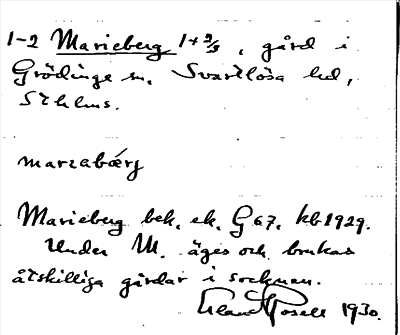 1-2 Marieberg 1+2/3, gård i
Grödinge sn, Svartlösa hd,
Sthlms.
marɩabærg
Marieberg bek. ek. G 67. kb 1929.
Under M. äges och brukas
åtskilliga gårdar i socknen.
Rosell 1930.